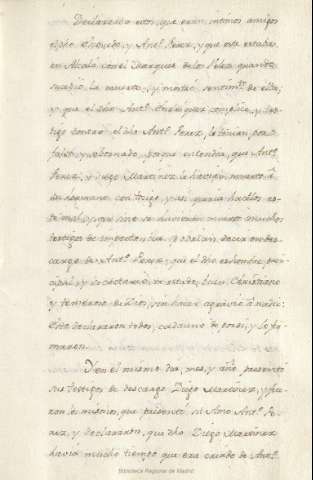 Declarando estos, que eran intimos amigos
el dho Escovedo, y Antº. Perez, y que este estaba
en Alcalá con el Marques de los Velez, quando
sucedio la muerte, y mostró sentimtº. de ella;
y que el dho Antº. Enriquez complice, y tes-
tigo contra el dho Antº. Perez, le tenian por
falso, y sobornado, porque entendia, que Antº.
Perez, y Diego Martinez le havian muerto á
su hermano con trigo, y asi queria hacerles es-
te mal; y que sino se hubieran muerto muchos
testigos de importancia, podrian decir en des-
cargo de Antº. Perez, y que el dho es hombre prin-
cipal, y de calidad, mi estado, buen Christiano
y temeroso de Dios, sin hacer agravio á nadie:
Esto declararon todos, cada uno de por si, y lo fir-
maron.
Y en el mismo dia, mes, y año, presentó
sus testigos de descargo Diego Martinez, y fue-
ron los mismos, que presentó su Amo Antº. Pe-
rez, y declararon, que dho Diego Martinez
havia mucho tiempo que era criado de Antº.
Biblioteca Regional de Madrid